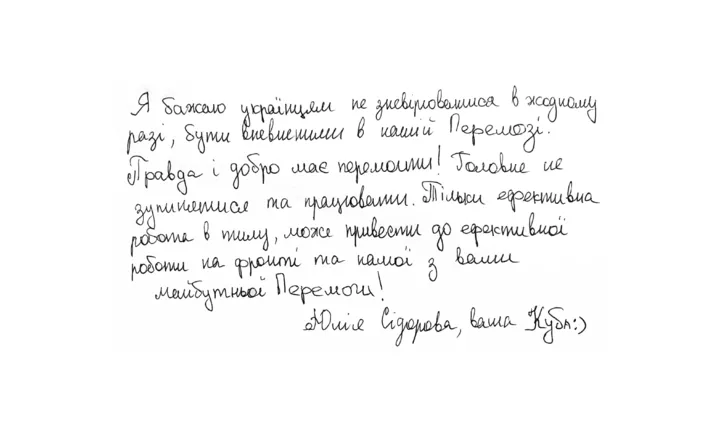 Я бажаю українцям не зневірюватися в жодному
разі, бути впевненими в нашій Перемозі.
Правда і добро має перемогти! Головне не
зупинятися та працювати. Тільки ефективна
робота в тилу, може привести до ефективної
роботи на фронті та нашої з вами
майбутньої Перемоги!
Юлія Сідорова, ваша Куба:)